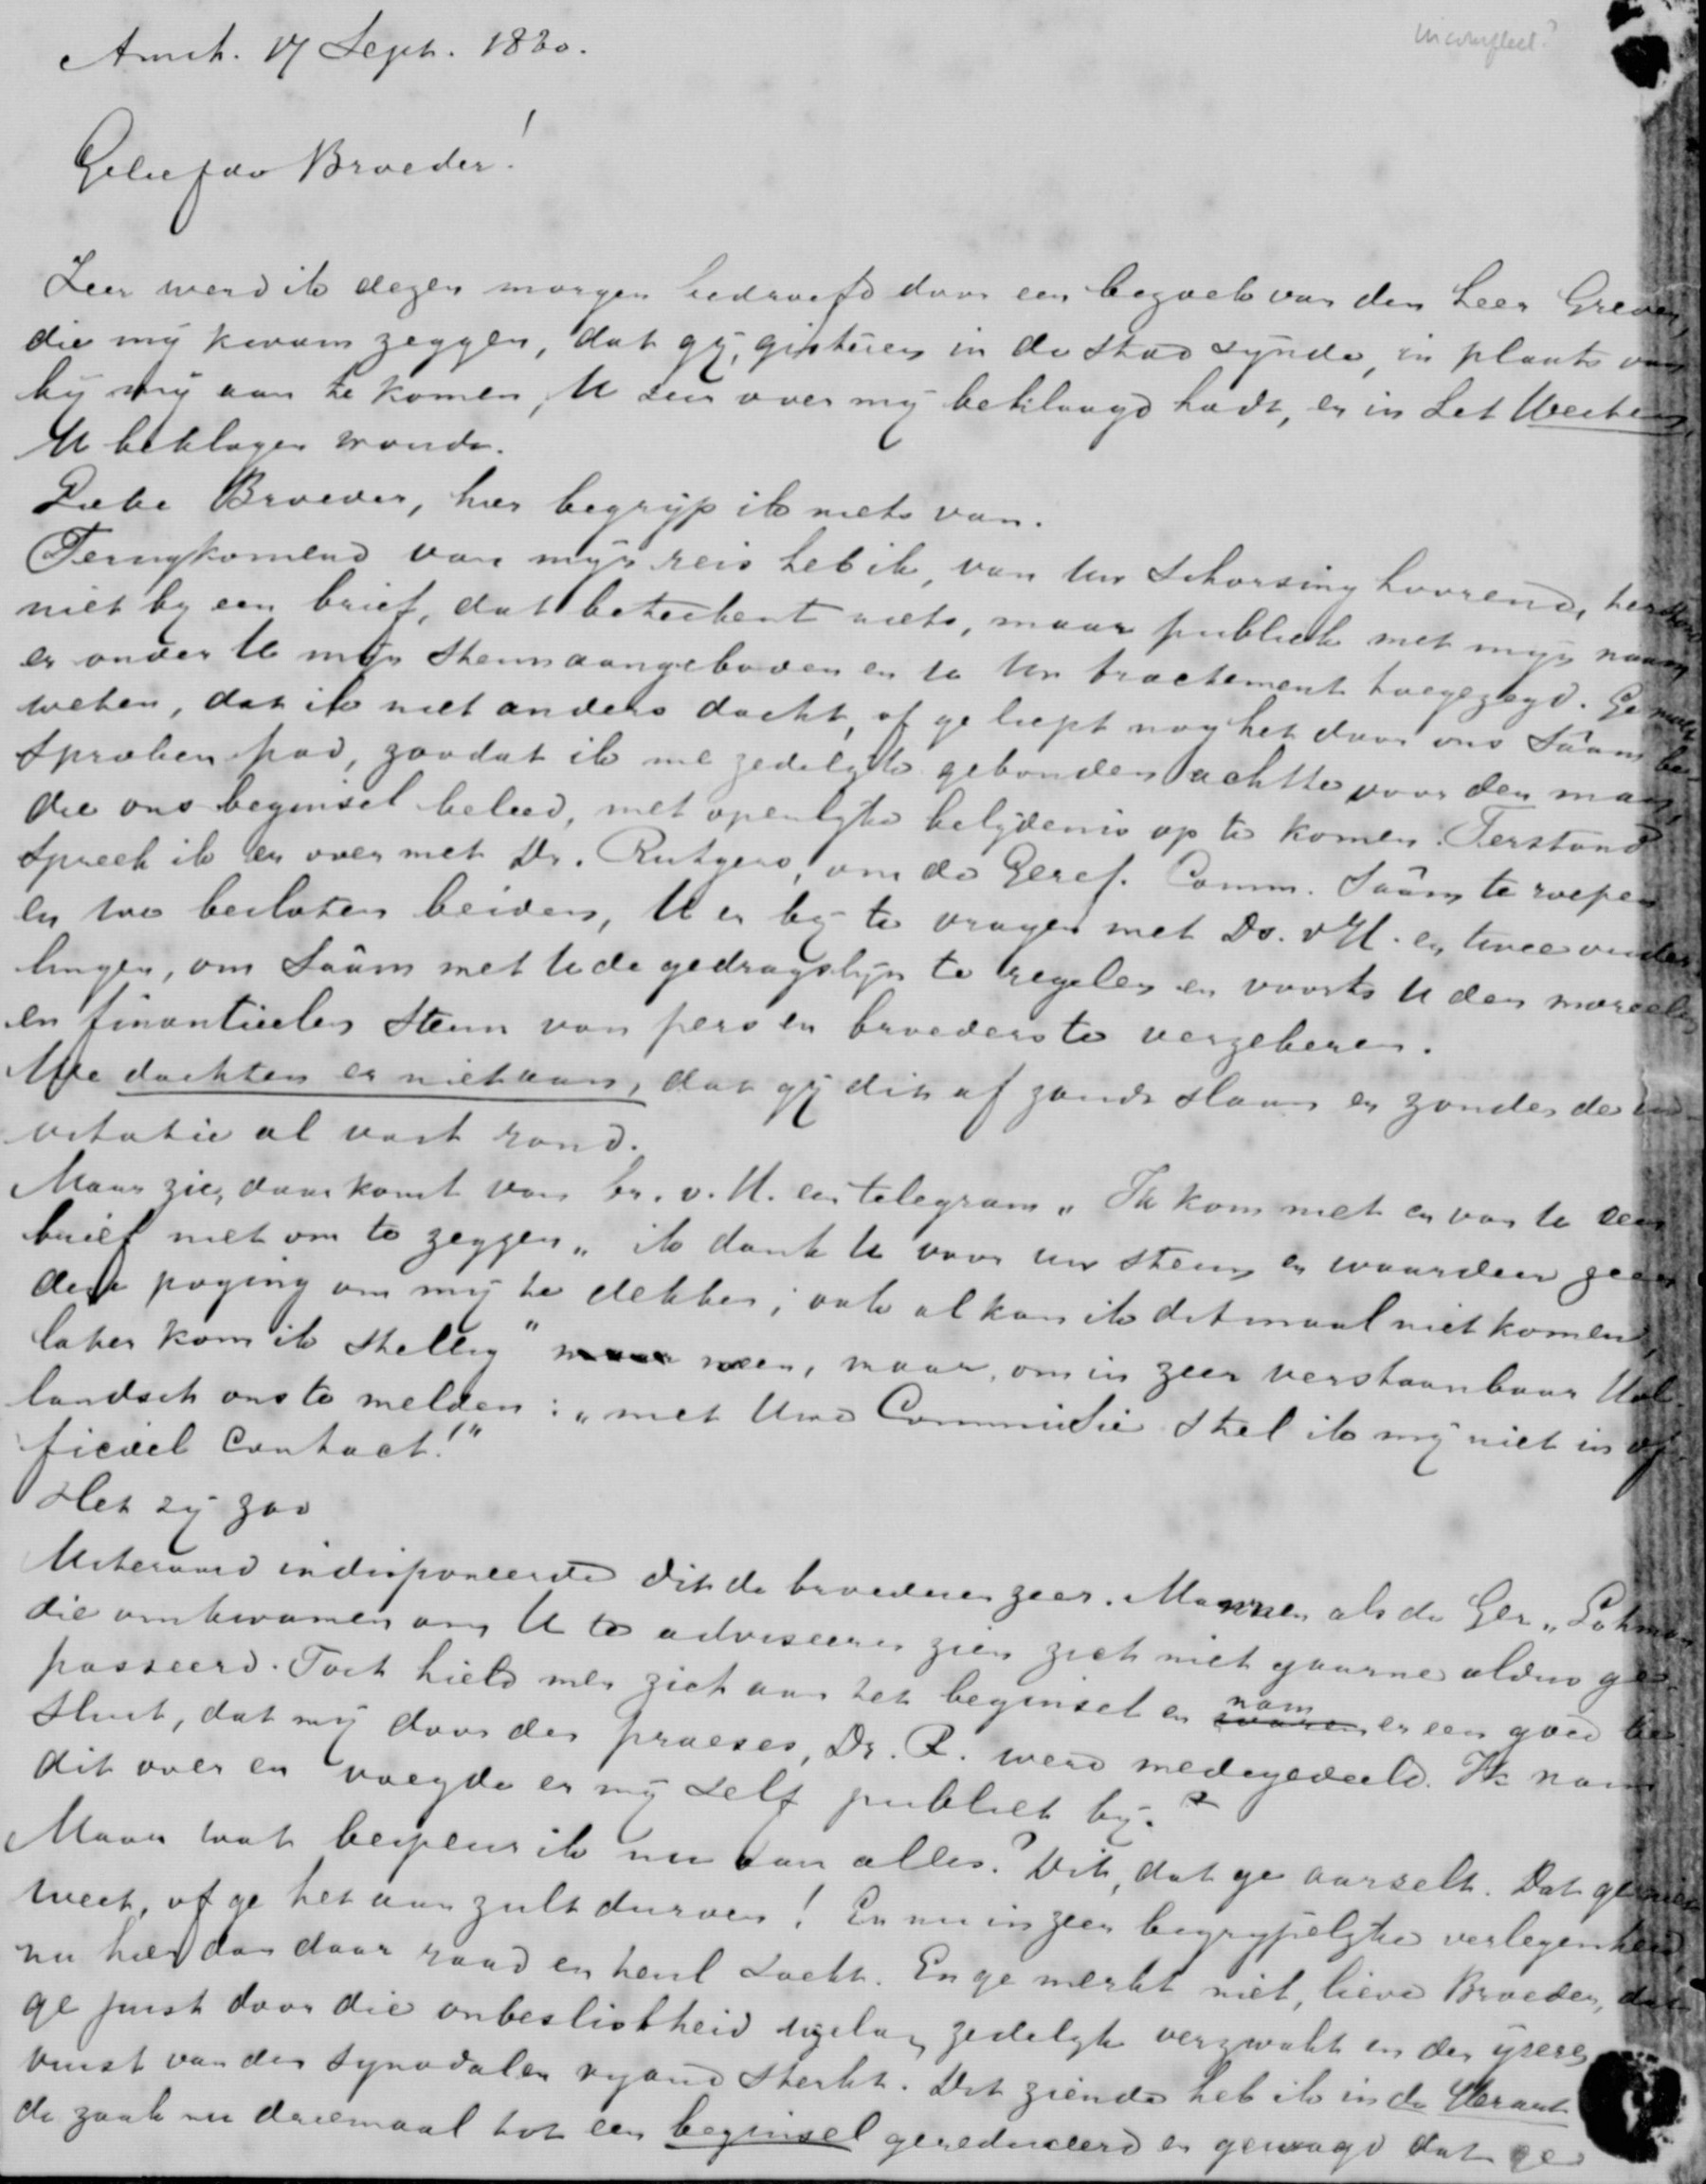 incompleet?
Amst. 17 Sept. 1880.
Geliefde Broeder!
Zeer werd ik dezen morgen bedroefd door een bezoek van den heer Greven,
die mij kwam zeggen, dat gij, gisteren in de stad zijnde, in plaats van
bij mij aan te komen, U zeer over mij beklaagd hadt, en in het Westen,
U beklagen zoudt.
Liebe Broeder, hier begrijp ik niets van.
Terugkomend van mijn reis heb ik, van Uw schorsing hoorend, terstond
niet bij een brief, dat beteekent niets, maar publiek met mijn naam
er onder U mijn steun aangeboden en U Uw tractement toegezegd. Ge moet
weten, dat ik niet anders dacht, of ge liept nog het door ons sâam be-
sproken pad, zoodat ik me zedelijk gebonden achtte voor den man,
die ons beginsel beleed, met openlijke belijdenis op te komen. Terstond
spreek ik er over met Dr. Rutgers, om de Geref. Comm. sâam te roepen
en we besloten beiden, U er bij te vragen met Ds. v H. en twee ouder-
lingen, om sâam met U de gedragslijn te regelen en voorts U den moreelen
en finantieelen steun van pers en broeders te verzekeren.
We dachten er niet aan, dat gij dit af zoudt slaan en zonden de in-
vitatie al vast rond.
Maar zie, daar komt van br. v. H. een telegram „Ik kom niet en van U een
brief niet om te zeggen „ik dank U voor uw steun en waardeer zeer
deze poging om mij te dekken; ook al kan ik ditmaal niet komen,
later kom ik stellig" neen, maar, om in zeer verstaanbaar Hol-
landsch ons te melden: „met Uwe Commissie stel ik mij niet in of-
ficieel contact!"
Het zij zoo
Uiteraard indisponeerde dit de broederen zeer. Mannen als de Ger., Lohman
die omkwamen om U te adviseeren zien zich niet gaarne aldus ge-
passeerd. Toch hield men zich aan het beginsel en nam er een goed be-
sluit, dat mij door den praeses, Dr. R. werd medegedeeld. Ik nam
dit over en voegde er mij zelf publiek bij.
Maar wat bespeur ik nu aan alles? Dit, dat ge aarzelt. Dat ge niet
weet, of ge het aan zult durven! En nu in zeer begrijpelijke verlegenheid,
nu hier dan daar raad en heul zoekt. En ge merkt niet, lieve Broeder, dat
ge juist door die onbeslistheid zedelijk verzwakt en den ijzeren
vuist van den synodalen vijand sterkt. Dit ziende heb ik in de Heraut
de zaak nu driemaal tot een beginsel gereduceerd en gewaagd dat ge